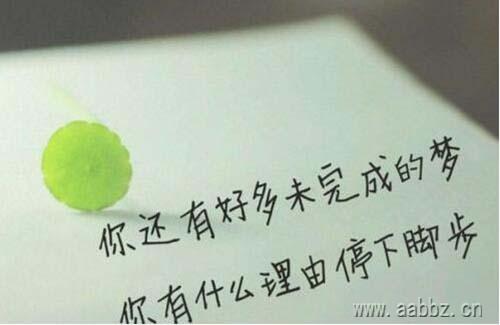 你还有好多未完成的梦
你有什么理由停下脚步
www.aabbz.cn